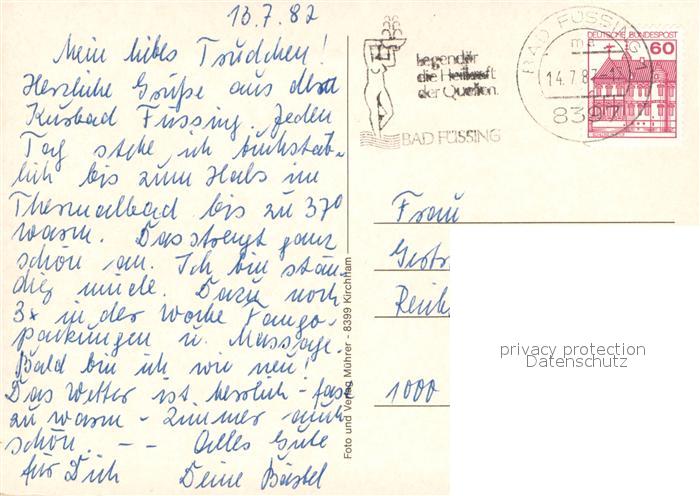 13.7.82
Mein liebes Trudchen!
Herzliche Grüße aus dem
Kurbad Füssing. Jeden
Tag stehe ich buchstäb-
lich bis zum Hals im
Thermalbad bis zu 37°
warm. Das strengt ganz
schön an. Ich bin stän-
dig müde. Dazu noch
3x in der Woche Fango-
packungen u. Massage.
Bald bin ich wie neu!
Das Wetter ist herrlich - fast
zu warm - Zimmer auch
schön. - - Alles Gute
für Dich Deine Bärbel
Foto und Verlag Mührer - 8399 Kirchham
Legendär
die Heilkraft
der Quellen.
BAD FÜSSING
BAD FÜSSING
ma
14.7.82
8397
DEUTSCHE BUNDESPOST
60
Frau
Gertr
Reich
1000
privacy protection
Datenschutz